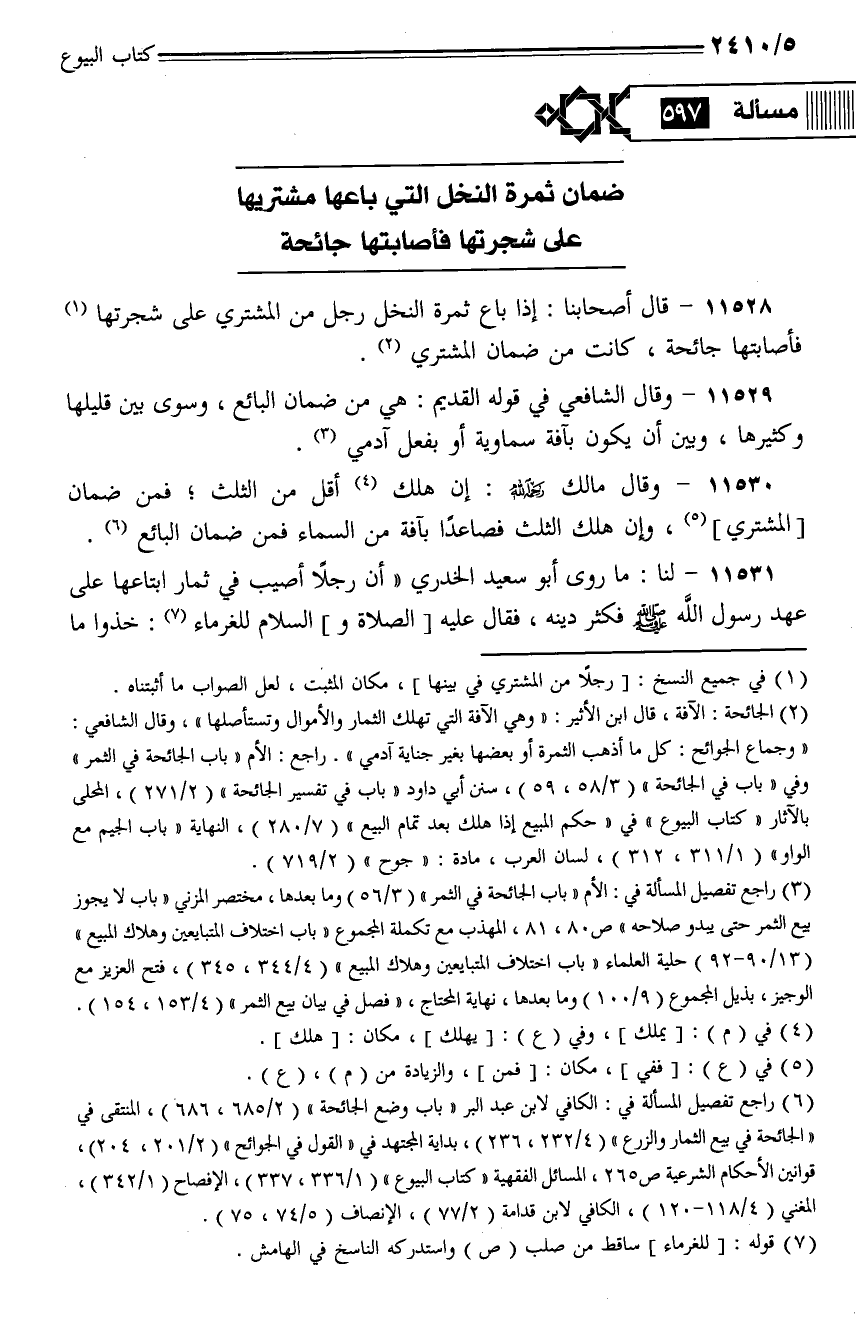 ٢٤١٠/٥ كتاب البيوع
مسألة ٥٩٧
ضمان ثمرة النخل التي باعها مشتريها
على شجرتها فأصابتها جائحة
١١٥٢٨ - قال أصحابنا : إذا باع ثمرة النخل رجل من المشتري على شجرتها (١)
فأصابتها جائحة ، كانت من ضمان المشتري (٢) .
١١٥٢٩ - وقال الشافعي في قوله القديم : هي من ضمان البائع ، وسوى بين قليلها
وكثيرها ، وبين أن يكون بآفة سماوية أو بفعل آدمي (٣) .
١١٥٣٠ - وقال مالك رحمه الله : إن هلك (٤) أقل من الثلث ؛ فمن ضمان
[ المشتري ] (٥) ، وإن هلك الثلث فصاعدًا بآفة من السماء فمن ضمان البائع (٦) .
١١٥٣١ - لنا : ما روى أبو سعيد الخدري « أن رجلًا أصيب في ثمار ابتاعها على
عهد رسول اللَّه ﷺ فكثر دينه ، فقال عليه [ الصلاة و ] السلام للغرماء (٧) : خذوا ما
(١) في جميع النسخ : [ رجلًا من المشتري في بينها ] ، مكان المثبت ، لعل الصواب ما أثبتناه .
(٢) الجائحة : الآفة ، قال ابن الأثير : « وهي الآفة التي تهلك الثمار والأموال وتستأصلها » ، وقال الشافعي :
« وجماع الجوائح : كل ما أذهب الثمرة أو بعضها بغير جناية آدمي » . راجع : الأم « باب الجائحة في الثمر »
وفي « باب في الجائحة » ( ٥٨/٣ ، ٥٩ ) ، سنن أبي داود « باب في تفسير الجائحة » ( ٢٧١/٢ ) ، المحلى
بالآثار « كتاب البيوع » في « حكم المبيع إذا هلك بعد تمام البيع » ( ٢٨٠/٧ ) ، النهاية « باب الجيم مع
الواو» ( ٣١١/١ ، ٣١٢ ) ، لسان العرب ، مادة : « جوح » ( ٧١٩/٢ ) .
(٣) راجع تفصيل المسألة في : الأم « باب الجائحة في الثمر » (٥٦/٣) وما بعدها ، مختصر المزني « باب لا يجوز
بيع الثمر حتى يبدو صلاحه » ص٨٠ ، ٨١ ، المهذب مع تكملة المجموع « باب اختلاف المتبايعين وهلاك المبيع »
(٩٠/١٣-٩٢ ) حلية العلماء « باب اختلاف المتبايعين وهلاك المبيع » ( ٣٤٤/٤ ، ٣٤٥ ) ، فتح العزيز مع
الوجيز ، بذيل المجموع ( ١٠٠/٩ ) وما بعدها ، نهاية المحتاج ، « فصل في بيان بيع الثمر » ( ١٥٣/٤ ، ١٥٤ ) .
(٤) في ( م ) : [ يملك ] ، وفي ( ع ) : [ يهلك ] ، مكان : [ هلك ] .
(٥) في ( ع ) : [ ففي ] ، مكان : [ فمن ] ، والزيادة من ( م ) ، ( ع ) .
(٦) راجع تفصيل المسألة في : الكافي لابن عبد البر « باب وضع الجائحة » ( ٦٨٥/٢ ، ٦٨٦ ) ، المنتقى في
« الجائحة في بيع الثمار والزرع » ( ٢٣٢/٤ ، ٢٣٦ ) ، بداية المجتهد في « القول في الجوائح » ( ٢٠١/٢ ، ٢٠٤ ) ،
قوانين الأحكام الشرعية ص٢٦٥ ، المسائل الفقهية « كتاب البيوع » ( ٣٣٦/١ ، ٣٣٧ ) ، الإفصاح ( ٣٤٢/١ ) ،
المغني ( ١١٨/٤-١٢٠ ) ، الكافي لابن قدامة ( ٧٧/٢ ) ، الإنصاف ( ٧٤/٥ ، ٧٥ ) .
(٧) قوله : [ للغرماء ] ساقط من صلب ( ص ) واستدركه الناسخ في الهامش .